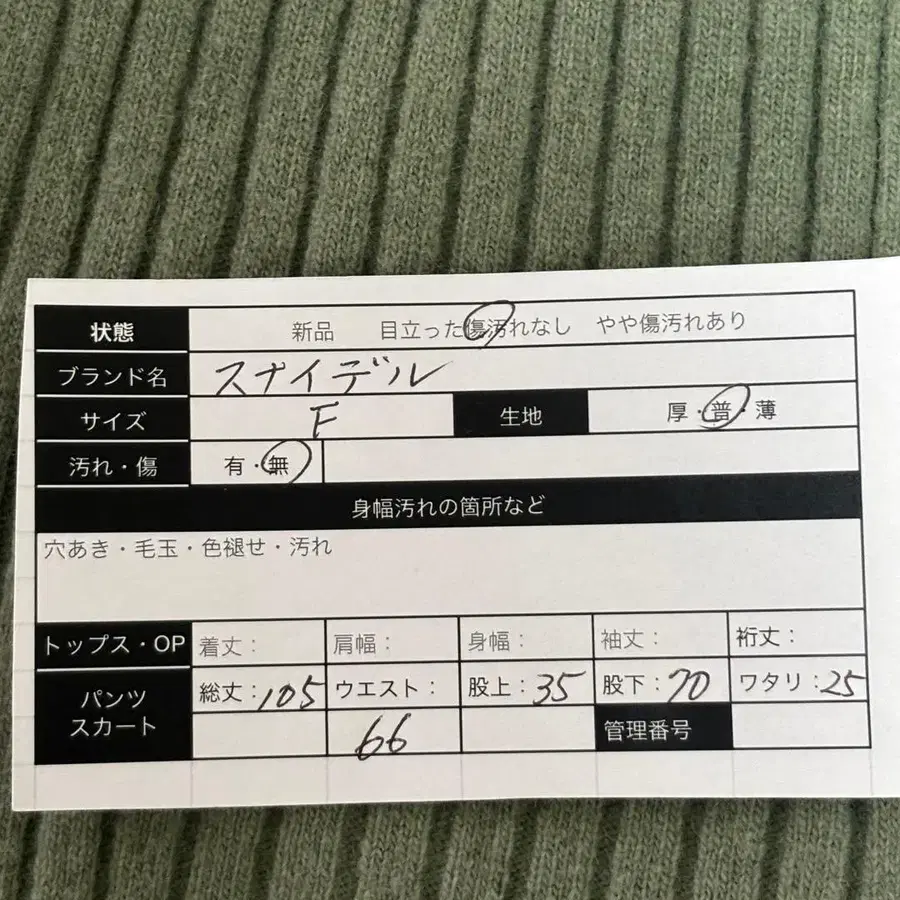 状態 新品 目立った傷汚れなし やや傷汚れあり
ブランド名 スナイデル
サイズ F 生地 厚・普・薄
汚れ・傷 有・無
身幅汚れの箇所など
穴あき・毛玉・色褪せ・汚れ
トップス・OP 着丈: 肩幅: 身幅: 袖丈: 裄丈:
パンツ 総丈:105 ウエスト: 股上:35 股下:70 ワタリ:25
スカート 66 管理番号